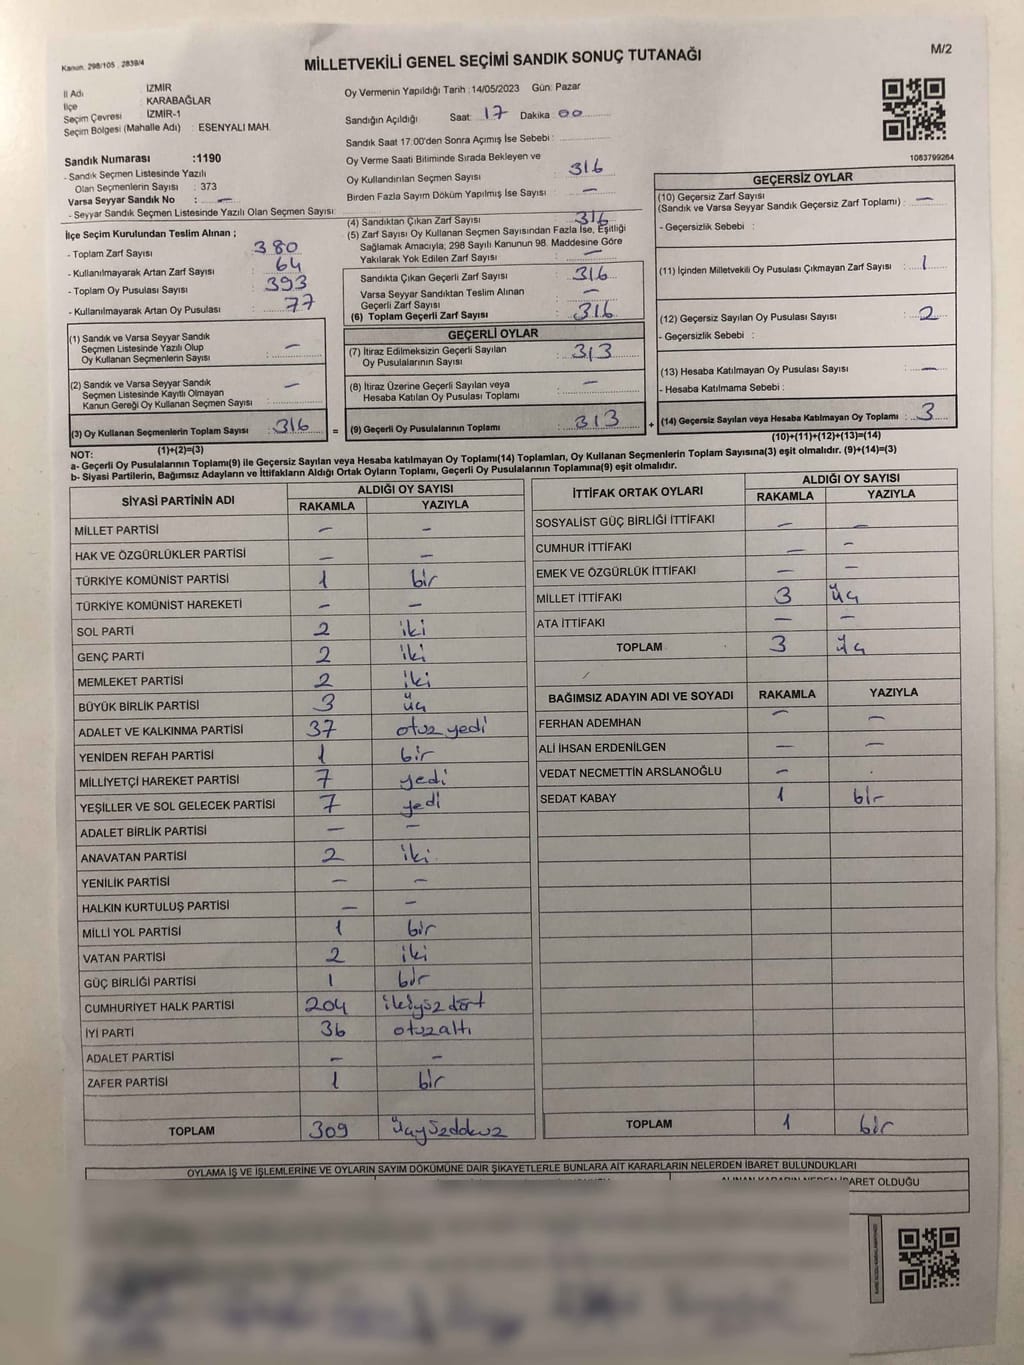 Kanun: 298/105 , 2839/4
MİLLETVEKİLİ GENEL SEÇİMİ SANDIK SONUÇ TUTANAĞI
M/2
İl Adı : İZMİR
İlçe : KARABAĞLAR
Seçim Çevresi : İZMİR-1
Seçim Bölgesi (Mahalle Adı) : ESENYALI MAH.
Sandık Numarası :1190
- Sandık Seçmen Listesinde Yazılı
Olan Seçmenlerin Sayısı : 373
Varsa Seyyar Sandık No : -
- Seyyar Sandık Seçmen Listesinde Yazılı Olan Seçmen Sayısı:
İlçe Seçim Kurulundan Teslim Alınan ;
- Toplam Zarf Sayısı 380
- Kullanılmayarak Artan Zarf Sayısı : 64
- Toplam Oy Pusulası Sayısı : 393
- Kullanılmayarak Artan Oy Pusulası : 77
(1) Sandık ve Varsa Seyyar Sandık
Seçmen Listesinde Yazılı Olup
Oy Kullanan Seçmenlerin Sayısı : -
(2) Sandık ve Varsa Seyyar Sandık
Seçmen Listesinde Kayıtlı Olmayan
Kanun Gereği Oy Kullanan Seçmen Sayısı : -
(3) Oy Kullanan Seçmenlerin Toplam Sayısı : 316 =
(1)+(2)=(3)
Oy Vermenin Yapıldığı Tarih :14/05/2023 Gün: Pazar
Sandığın Açıldığı Saat: 17 Dakika 00
Sandık Saat 17:00'den Sonra Açımış İse Sebebi :
Oy Verme Saati Bitiminde Sırada Bekleyen ve
Oy Kullandırılan Seçmen Sayısı : 316
Birden Fazla Sayım Döküm Yapılmış İse Sayısı : -
(4) Sandıktan Çıkan Zarf Sayısı : 316
(5) Zarf Sayısı Oy Kullanan Seçmen Sayısından Fazla İse, Eşitliği
Sağlamak Amacıyla; 298 Sayılı Kanunun 98. Maddesine Göre
Yakılarak Yok Edilen Zarf Sayısı : -
Sandıkta Çıkan Geçerli Zarf Sayısı : 316
Varsa Seyyar Sandıktan Teslim Alınan
Geçerli Zarf Sayısı : -
(6) Toplam Geçerli Zarf Sayısı : 316
GEÇERLİ OYLAR
(7) İtiraz Edilmeksizin Geçerli Sayılan
Oy Pusulalarının Sayısı : 313
(8) İtiraz Üzerine Geçerli Sayılan veya
Hesaba Katılan Oy Pusulası Toplamı : -
(9) Geçerli Oy Pusulalarının Toplamı : 313 +
1083799264
GEÇERSİZ OYLAR
(10) Geçersiz Zarf Sayısı
(Sandık ve Varsa Seyyar Sandık Geçersiz Zarf Toplamı) : -
- Geçersizlik Sebebi :
(11) İçinden Milletvekili Oy Pusulası Çıkmayan Zarf Sayısı : 1
(12) Geçersiz Sayılan Oy Pusulası Sayısı : 2
- Geçersizlik Sebebi :
(13) Hesaba Katılmayan Oy Pusulası Sayısı : -
- Hesaba Katılmama Sebebi :
(14) Geçersiz Sayılan veya Hesaba Katılmayan Oy Toplamı : 3
(10)+(11)+(12)+(13)=(14)
NOT:
a- Geçerli Oy Pusulalarının Toplamı(9) ile Geçersiz Sayılan veya Hesaba katılmayan Oy Toplamı(14) Toplamları, Oy Kullanan Seçmenlerin Toplam Sayısına(3) eşit olmalıdır. (9)+(14)=(3)
b- Siyasi Partilerin, Bağımsız Adayların ve İttifakların Aldığı Ortak Oyların Toplamı, Geçerli Oy Pusulalarının Toplamına(9) eşit olmalıdır.
SİYASİ PARTİNİN ADI ALDIĞI OY SAYISI
RAKAMLA YAZIYLA
MİLLET PARTİSİ - -
HAK VE ÖZGÜRLÜKLER PARTİSİ - -
TÜRKİYE KOMÜNİST PARTİSİ 1 bir
TÜRKİYE KOMÜNİST HAREKETİ - -
SOL PARTİ 2 iki
GENÇ PARTİ 2 iki
MEMLEKET PARTİSİ 2 iki
BÜYÜK BİRLİK PARTİSİ 3 üç
ADALET VE KALKINMA PARTİSİ 37 otuz yedi
YENİDEN REFAH PARTİSİ 1 bir
MİLLİYETÇİ HAREKET PARTİSİ 7 yedi
YEŞİLLER VE SOL GELECEK PARTİSİ 7 yedi
ADALET BİRLİK PARTİSİ - -
ANAVATAN PARTİSİ 2 iki
YENİLİK PARTİSİ - -
HALKIN KURTULUŞ PARTİSİ - -
MİLLİ YOL PARTİSİ 1 bir
VATAN PARTİSİ 2 iki
GÜÇ BİRLİĞİ PARTİSİ 1 bir
CUMHURİYET HALK PARTİSİ 204 ikiyüz dört
İYİ PARTİ 36 otuzaltı
ADALET PARTİSİ - -
ZAFER PARTİSİ 1 bir
TOPLAM 309 üçyüzdokuz
İTTİFAK ORTAK OYLARI ALDIĞI OY SAYISI
RAKAMLA YAZIYLA
SOSYALİST GÜÇ BİRLİĞİ İTTİFAKI - -
CUMHUR İTTİFAKI - -
EMEK VE ÖZGÜRLÜK İTTİFAKI - -
MİLLET İTTİFAKI 3 üç
ATA İTTİFAKI - -
TOPLAM 3 üç
BAĞIMSIZ ADAYIN ADI VE SOYADI RAKAMLA YAZIYLA
FERHAN ADEMHAN - -
ALİ İHSAN ERDENİLGEN - -
VEDAT NECMETTİN ARSLANOĞLU - .
SEDAT KABAY 1 bir
TOPLAM 1 bir
OYLAMA İŞ VE İŞLEMLERİNE VE OYLARIN SAYIM DÖKÜMÜNE DAİR ŞİKAYETLERLE BUNLARA AİT KARARLARIN NELERDEN İBARET BULUNDUKLARI
ALINAN KARARIN NEDEN İBARET OLDUĞU